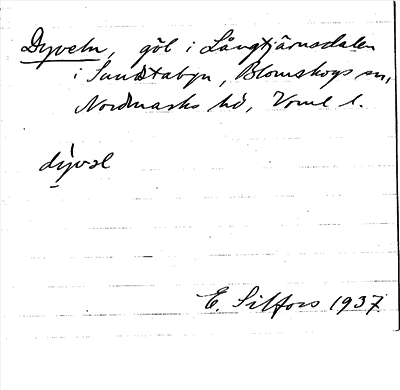 Dyveln, göl i Långtjärnsdalen
i Sundstabyn, Blomskogs sn,
Nordmarks hd, Vrml l.
dy̍vəl
E. Silfors 1937